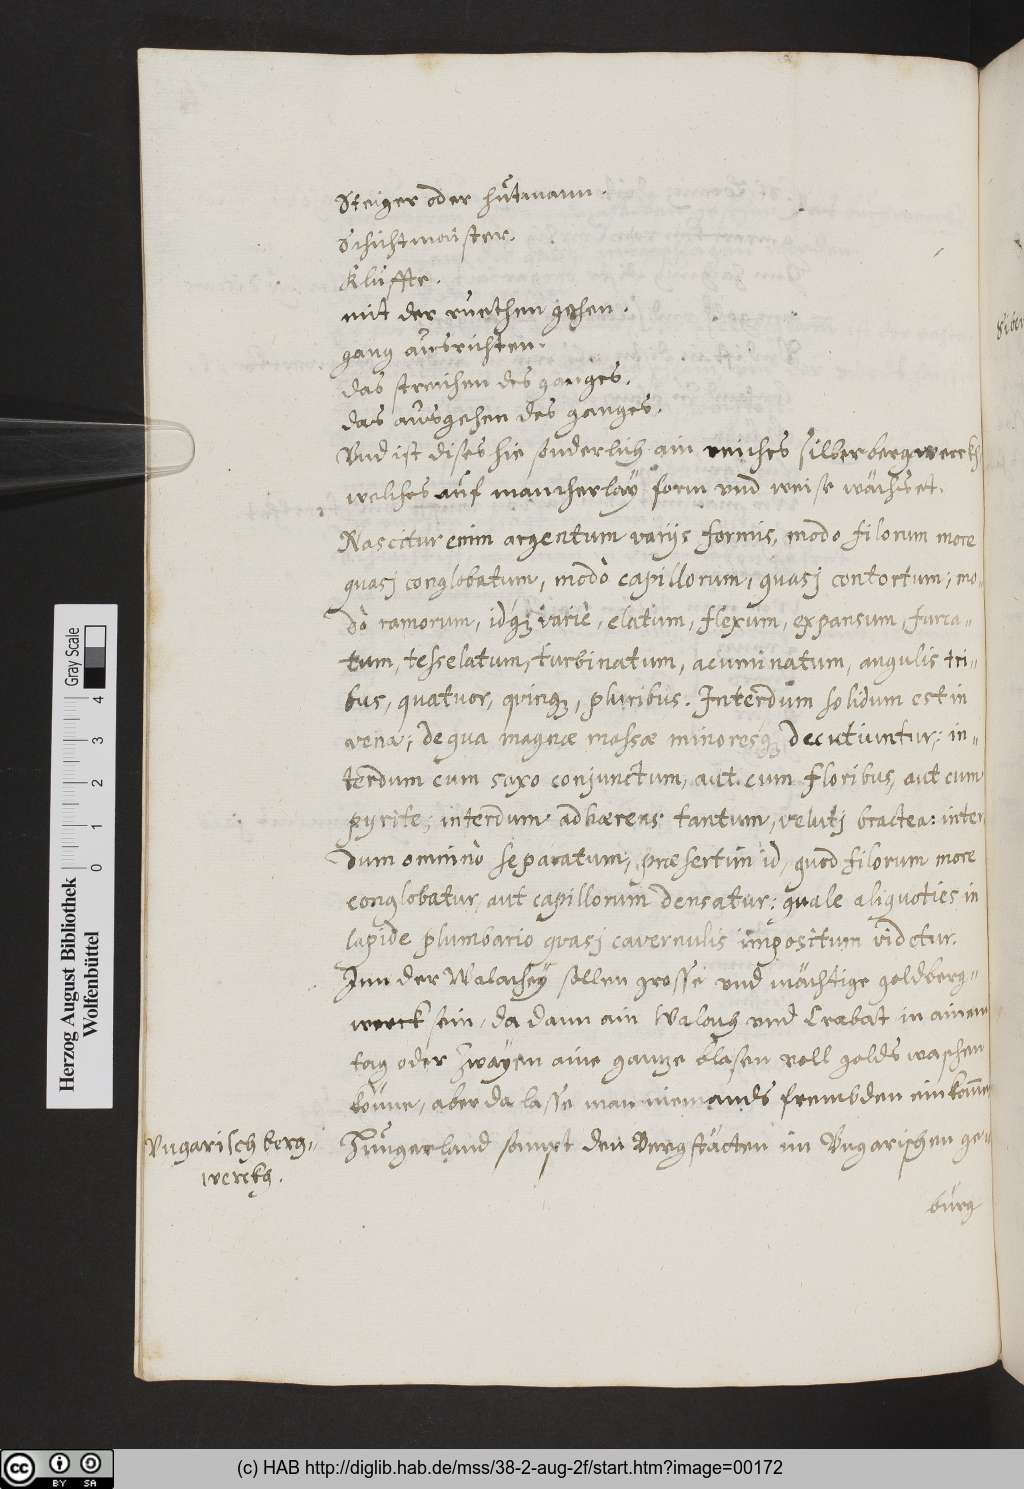 Steiger oder hütmann.
Schichtmaister.
Klüffte.
mit der ruethen gehen.
gang ausrichten.
das streichen des ganges.
das ausgehen des ganges.
Vnd ist dises hie sonderlich ain reiches silberbergwerckh
welches auf mancherlaÿ form vnd weise wächset.
Nascitur enim argentum varijs formis, modo filorum more
quasj conglobatum, modò capillorum, quasj contortum; mo-
dò ramorum, idq́; varie, elatum, flexum, expansum, furca-
tum, tesselatum, turbinatum, acuminatum, angulis tri-
bus, quatuor, quinq;, pluribus. Interdum solidum est in
vena; de qua magnæ massæ minoresq́; decutiuntur; in-
terdum cum saxo conjunctum, aut cum floribus, aut cum
pyrite; interdum adhærens tantum, velutj bractea: inter
dum omninò separatum, præsertim id, quod filorum more
conglobatur, aut capillorum densatur: quale aliquoties in
lapide plumbario quasj cavernulis impositum videtur.
Inn der Walachey sollen grosse vnd mächtige goldberg-
werck sein, da dann ain Walach vnd Crabat in ainem
tag oder zwayen aine gantze blasen voll golds waschen
könne, aber da lasse man niemands frembden einkom̄en
Hungerland sampt den Bergstätten im Vngarischen ge-
bürg
Vngarisch berg-
werckh.
Silber
Herzog August Bibliothek
Wolfenbüttel
0 1 2 3 4
Gray Scale
cc BY SA
(c) HAB http://diglib.hab.de/mss/38-2-aug-2f/start.htm?image=00172